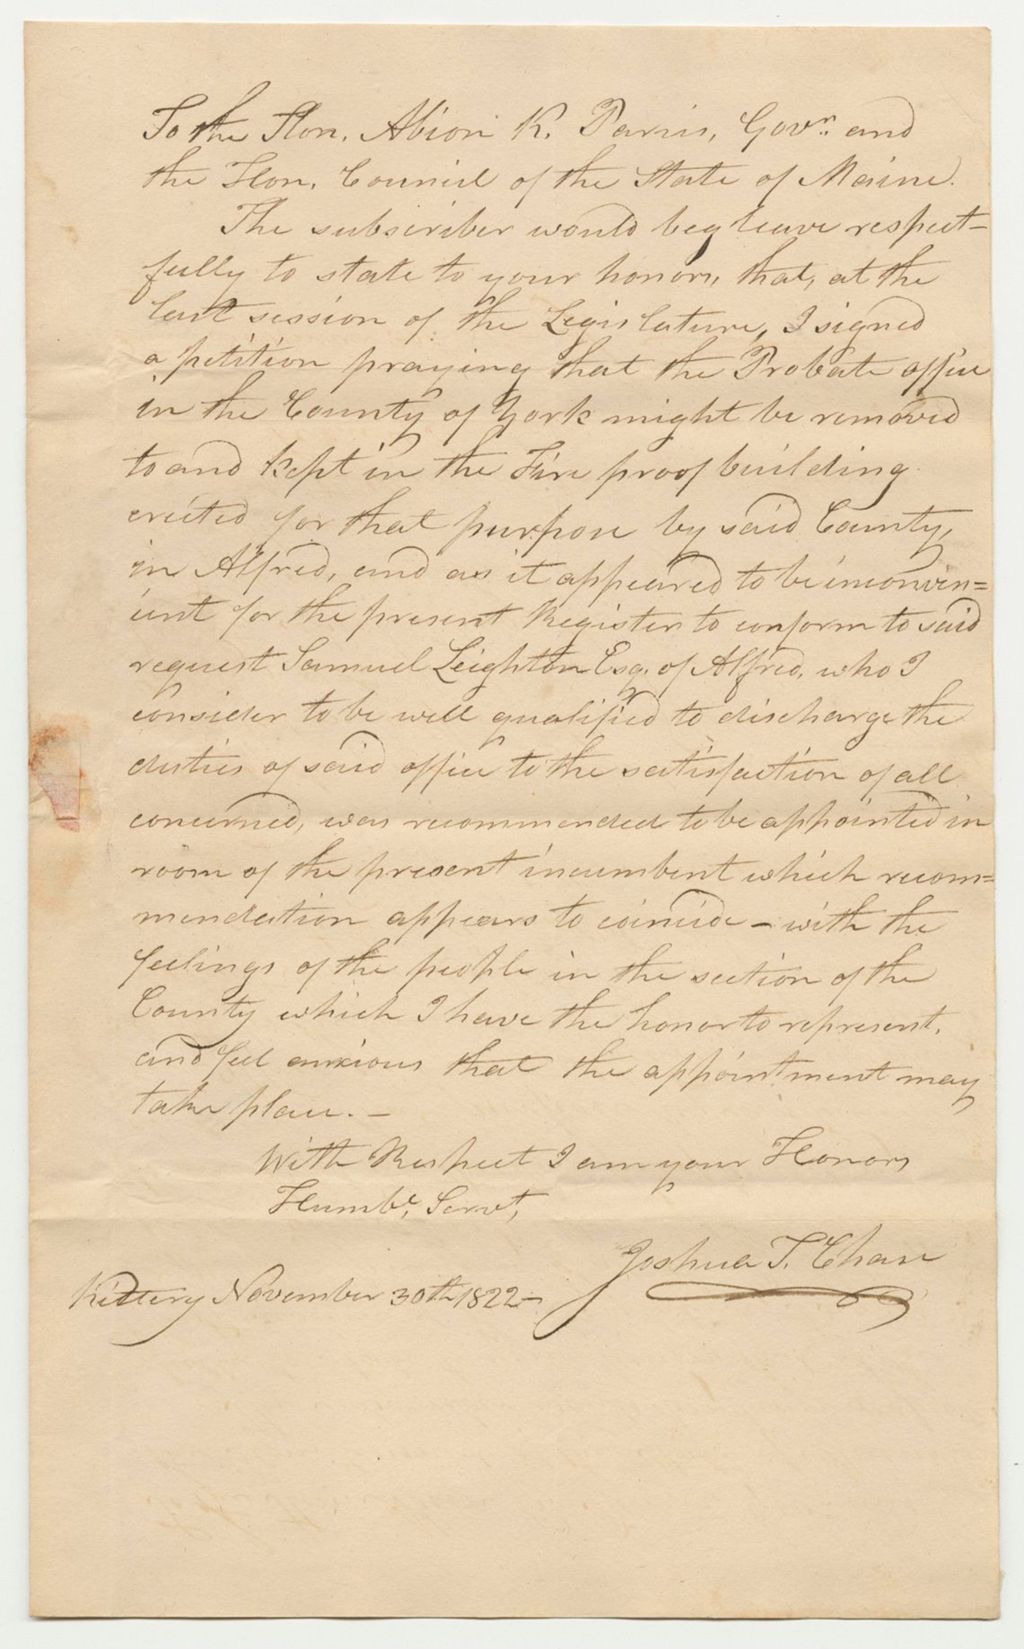 To the Hon. Albion K. Parris, Govr. and
the Hon. Council of the State of Maine.
The subscriber would beg leave respect-
fully to state to your honors, that, at the
last session of the Legislature, I signed
a petition praying that the Probate office
in the County of York might be removed
to and kept in the Fire proof building
erected for that purpose by said County,
in Alfred, and as it appeared to be inconven=
ient for the present Register to conform to said
request Samuel Leighton Esq. of Alfred, who I
consider to be well qualified to discharge the
duties of said office to the satisfaction of all
concerned, was recommended to be appointed in
room of the present incumbent which recom=
mendation appears to coincide - with the
feelings of the people in the section of the
County which I have the honor to represent,
and feel anxious that the appointment may
take place. -
With Respect I am your Honors
Humbe. Servt,
Joshua T. Chase
Kittery November 30th 1822 -